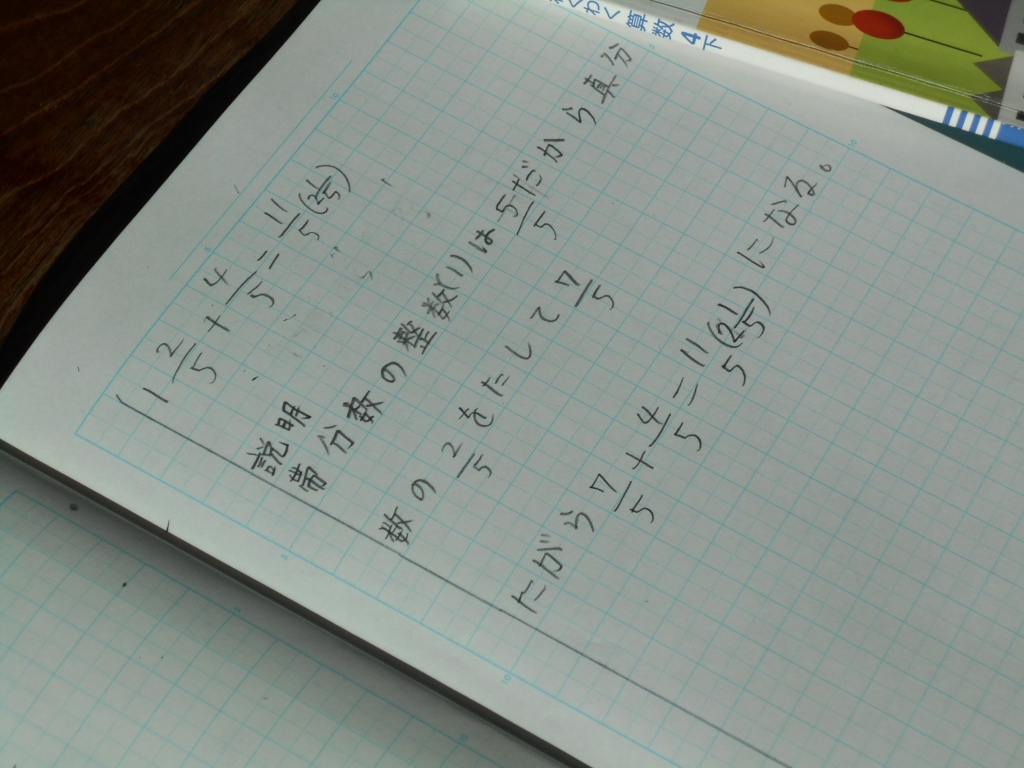 わくわく 算数 4下
1 2/5 + 4/5 = 11/5 (2 1/5)
説明
帯分数の整数(1)は 5/5 だから真分
数の 2/5 をたして 7/5
だから 7/5 + 4/5 = 11/5 (2 1/5) になる。